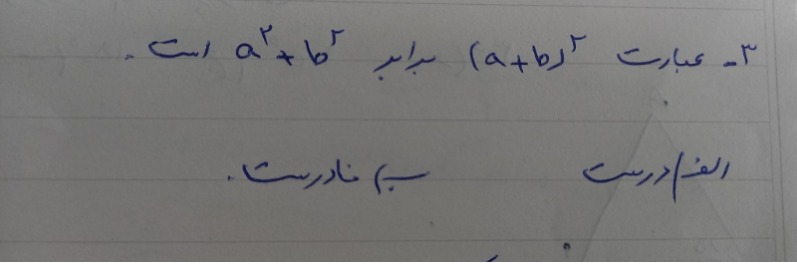 ۳- عبارت (a+b)^۲ برابر a^۲+b^۲ است.
الف) درست ب) نادرست.